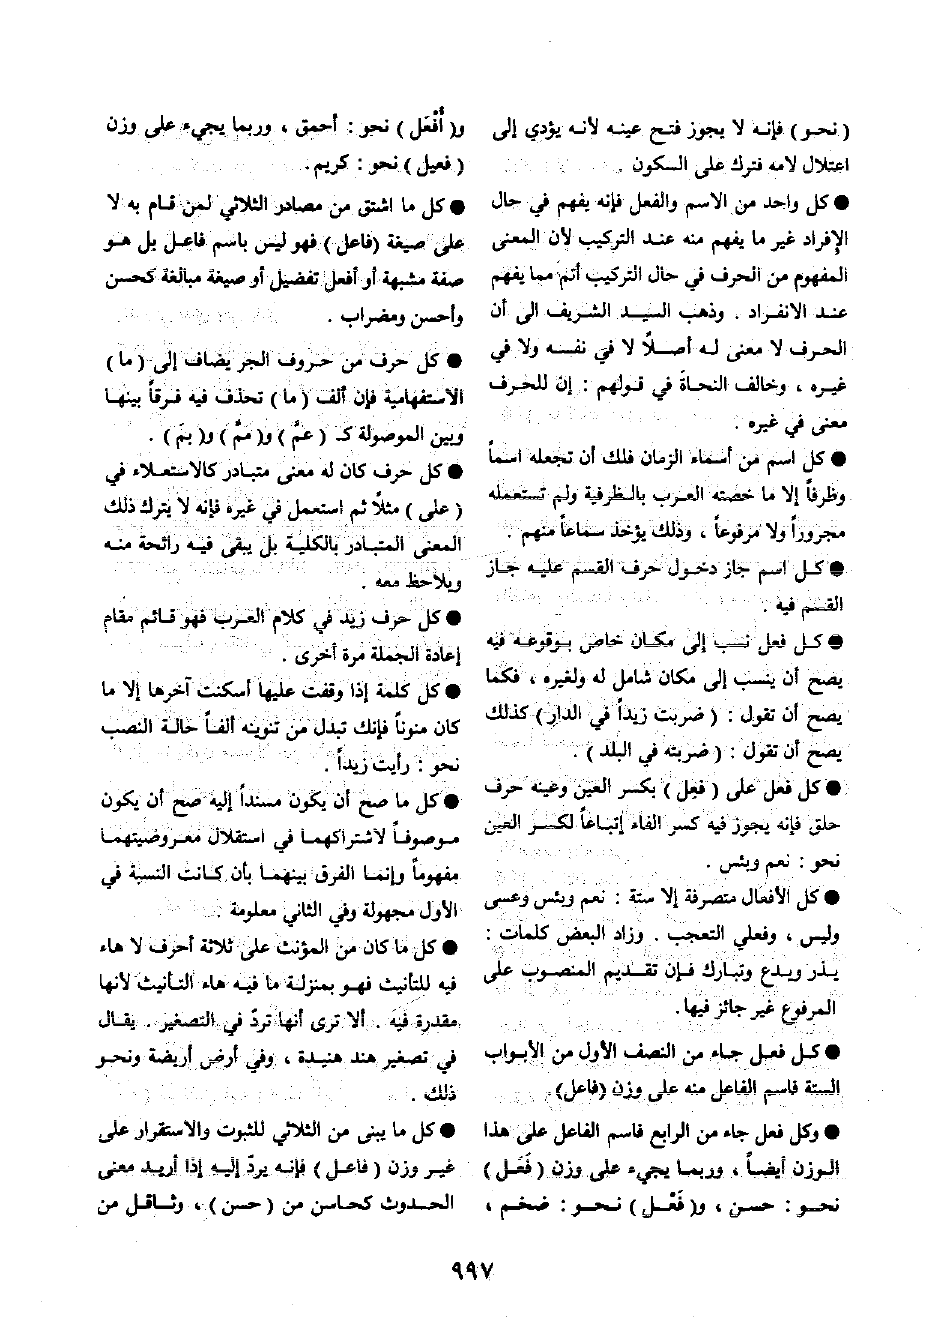 ( نحو ) فإنه لا يجوز فتح عينه لأنه يؤدي إلى
اعتلال لامه فترك على السكون .
● كل واحد من الاسم والفعل فإنه يفهم في حال
الإفراد غير ما يفهم منه عند التركيب لأن المعنى
المفهوم من الحرف في حال التركيب أتم مما يفهم
عند الانفراد . وذهب السيد الشريف الى أن
الحرف لا معنى له أصلاً لا في نفسه ولا في
غيره ، وخالف النحاة في قولهم : إن للحرف
معنى في غيره .
● كل اسم من أسماء الزمان فلك أن تجعله اسماً
وظرفاً إلا ما خصته العرب بالظرفية ولم تستعمله
مجروراً ولا مرفوعاً ، وذلك يؤخذ سماعاً منهم .
● كل اسم جاز دخول حرف القسم عليه جاز
القسم فيه .
● كل فعل نسب إلى مكان خاص بوقوعه فيه
يصح أن ينسب إلى مكان شامل له ولغيره ، فكما
يصح أن تقول : ( ضربت زيداً في الدار ) كذلك
يصح أن تقول : ( ضربته في البلد ) .
● كل فعل على ( فعِل ) بكسر العين وعينه حرف
حلق فإنه يجوز فيه كسر الفاء إتباعاً لكسر العين
نحو : نعم وبئس .
● كل الأفعال متصرفة إلا ستة : نعم وبئس وعسى
وليس ، وفعلي التعجب . وزاد البعض كلمات :
يذر ويدع وتبارك فإن تقديم المنصوب على
المرفوع غير جائز فيها.
● كل فعل جاء من النصف الأول من الأبواب
الستة فاسم الفاعل منه على وزن (فاعل).
● وكل فعل جاء من الرابع فاسم الفاعل على هذا
الوزن أيضاً ، وربما يجيء على وزن ( فَعَل )
نحو : حسن ، و( فَعْل ) نحو : ضخم ،
و( أَفْعَل ) نحو : أحمق ، وربما يجيء على وزن
( فعيل ) نحو : كريم.
● كل ما اشتق من مصادر الثلاثي لمن قام به لا
على صيغة (فاعل ) فهو ليس باسم فاعل بل هو
صفة مشبهة أو أفعل تفضيل أو صيغة مبالغة كحسن
وأحسن ومضراب .
● كل حرف من حروف الجر يضاف إلى ( ما )
الاستفهامية فإن ألف ( ما ) تحذف فيه فرقاً بينها
وبين الموصولة كـ ( عمَّ ) و( ممَّ ) و( بمَ ) .
● كل حرف كان له معنى متبادر كالاستعلاء في
( على ) مثلاً ثم استعمل في غيره فإنه لا يترك ذلك
المعنى المتبادر بالكلية بل يبقى فيه رائحة منه
ويلاحظ معه .
● كل حرف زيد في كلام العرب فهو قائم مقام
إعادة الجملة مرة أخرى .
● كل كلمة إذا وقفت عليها أسكنت آخرها إلا ما
كان منوناً فإنك تبدل من تنوينه ألفاً حالة النصب
نحو : رأيت زيداً .
● كل ما صح أن يكون مسنداً إليه صح أن يكون
موصوفاً لاشتراكهما في استقلال معروضيتهما
مفهوماً وإنما الفرق بينهما بأن كانت النسبة في
الأول مجهولة وفي الثاني معلومة .
● كل ما كان من المؤنث على ثلاثة أحرف لا هاء
فيه للتأنيث فهو بمنزلة ما فيه هاء التأنيث لأنها
مقدرة فيه . ألا ترى أنها تردّ في التصغير . يقال
في تصغير هند هنيدة ، وفي أرض أريضة ونحو
ذلك .
● كل ما يبنى من الثلاثي للثبوت والاستقرار على
غير وزن ( فاعل ) فإنه يردّ إليه إذا أريد معنى
الحدوث كحاسن من ( حسن ) ، وثاقل من
٩٩٧